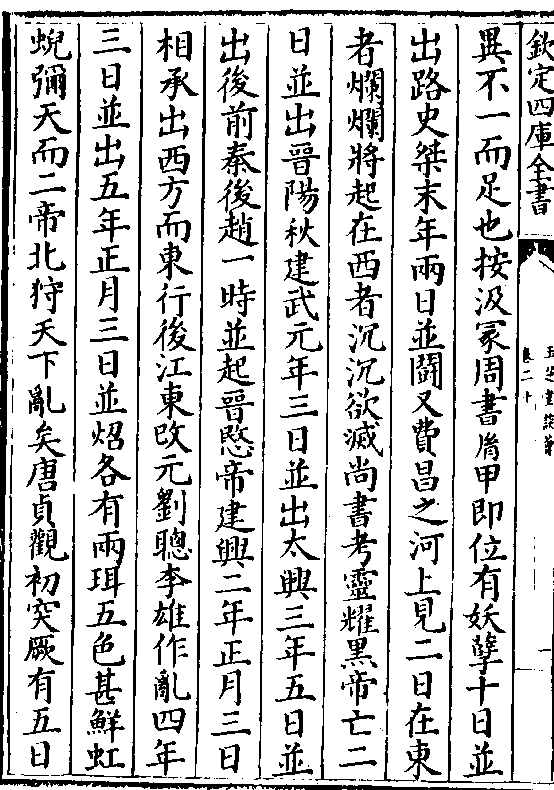 欽定四庫全書
卷二十
異不一而足也按汲冢周書胤甲即位有妖孽十日並
出路史桀末年兩日並鬬又費昌之河上見二日在東
者爛爛將起在西者沉沉欲滅尚書考靈耀黑帝亡二
日並出晉陽秋建武元年三日並出太興三年五日並
出後前秦後趙一時並起晉愍帝建興二年正月三日
相承出西方而東行後江東改元劉聰李雄作亂四年
三日並出五年正月三日並炤各有兩珥五色甚鮮虹
蜺彌天而二帝北狩天下亂矣唐貞觀初突厥有五日